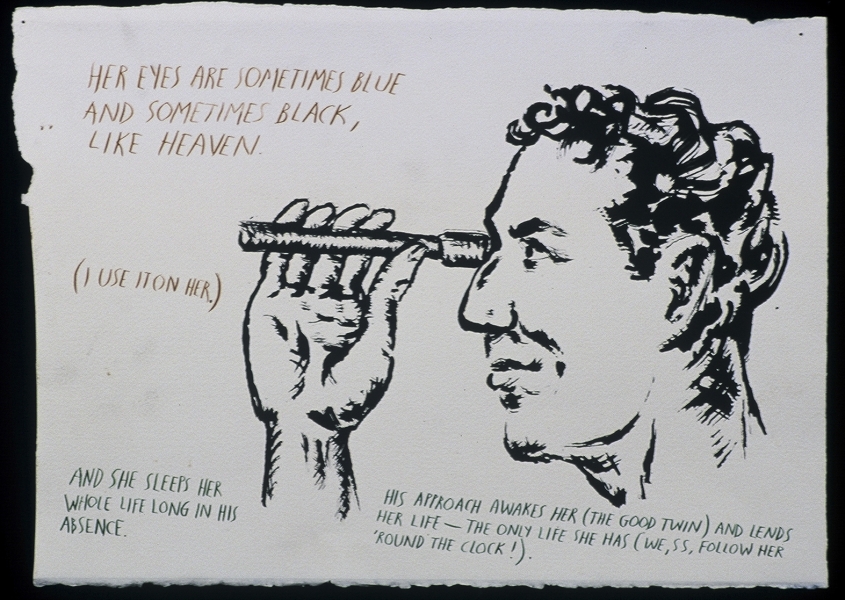 HER EYES ARE SOMETIMES BLUE
AND SOMETIMES BLACK,
LIKE HEAVEN.
(I USE IT ON HER.)
AND SHE SLEEPS HER
WHOLE LIFE LONG IN HIS
ABSENCE.
HIS APPROACH AWAKES HER (THE GOOD TWIN) AND LENDS
HER LIFE — THE ONLY LIFE SHE HAS (WE, SS, FOLLOW HER
'ROUND THE CLOCK!).